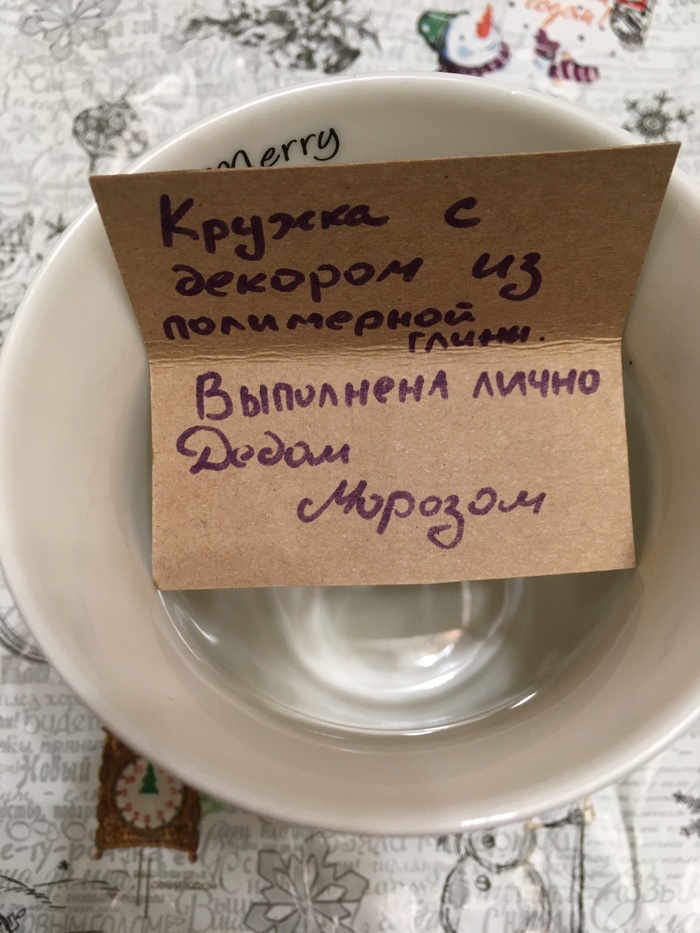 Merry
Кружка с
декором из
полимерной
глины.
Выполнена лично
Дедом
Морозом